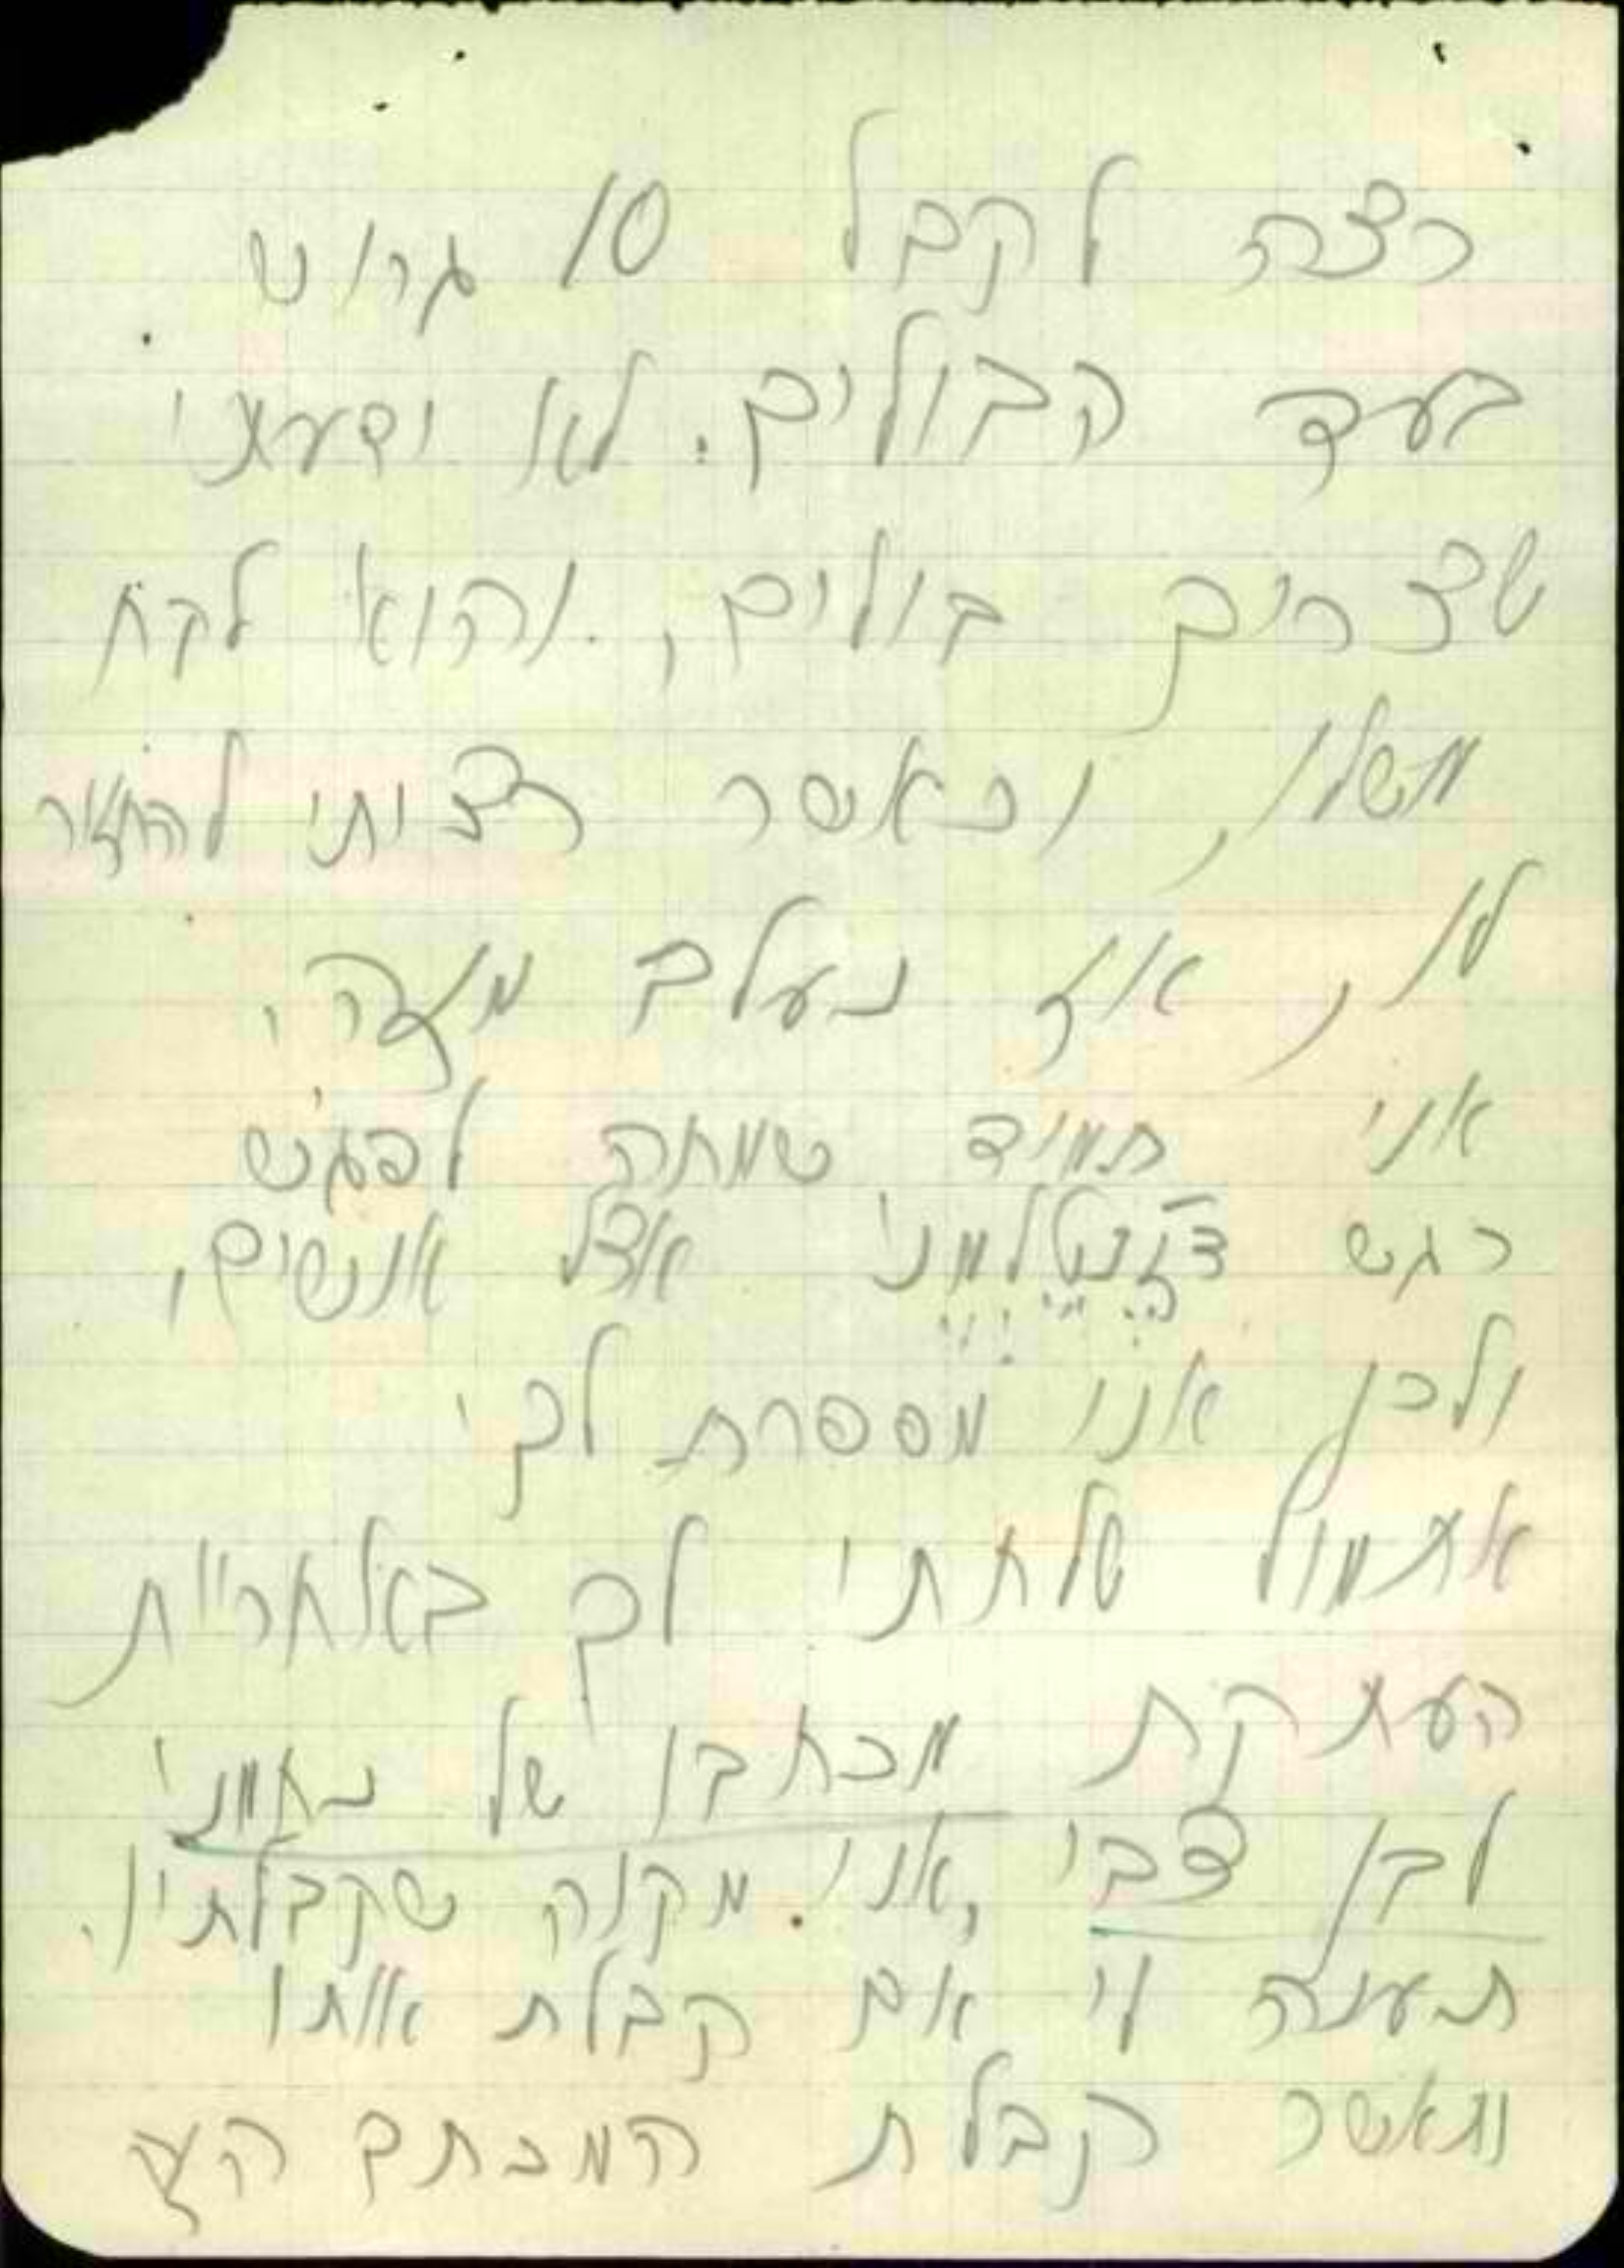 רצה לקבל 10 גרוש
בעד הבולים. לא ידעתי
שצריך בולים, והוא לקח
משלו, וכאשר רציתי להחזיר
לו, אז נעלב מזה.
אני תמיד שמחה לפגש
רגש ג'נטלמני אצל אנשים,
ולכן אני מספרת לך.
אתמול שלחתי לך באחריות
העתקת מכתבו של נחמני
לבן צבי, אני מקוה שקבלתיו.
תענה לי אם קבלת אותו
ותאשר קבלת המכתב הזה